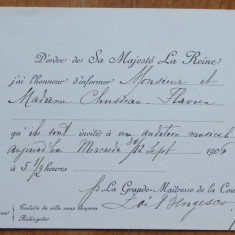 D'ordre de Sa Majesté La Reine
j'ai l'honneur d'informer Monsieur et
Madame Christian Flavien
qu'ils sont invités à une audition musicale
aujourd'hui Mercredi 30/12 Sept 1906
à 5 1/2 heures
La Grande-Maîtresse de la Cour
Toilette de ville sans chapeau
Redingote